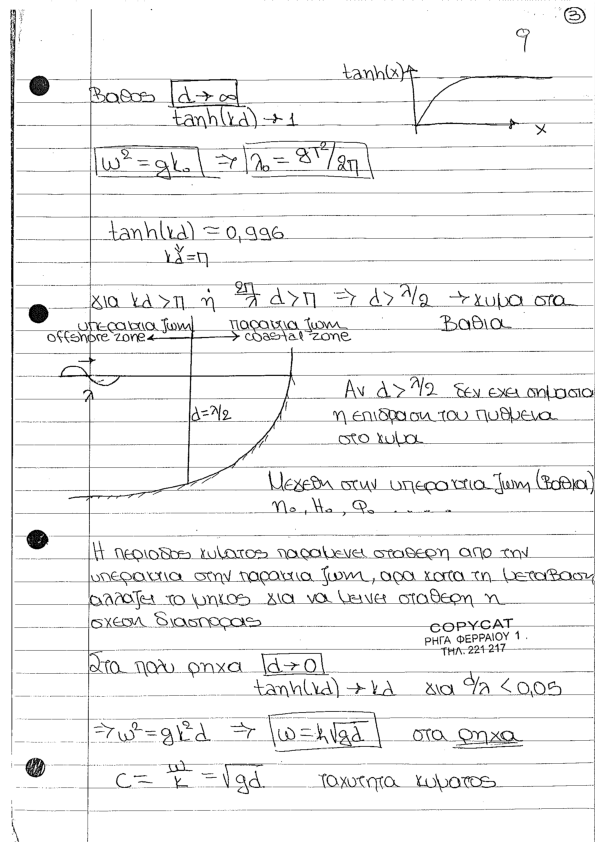 ③
9
Βαθος d → ∞
tanh(kd) → 1
tanh(x)
x
ω² = gk₀ ⇒ λ₀ = gT²/2π
tanh(kd) = 0,996
kd = π
για kd > π ή 2π/λ d > π ⇒ d > λ/2 → κυμα στα
Βαθια
υπερακτια ζωνη παρακτια ζωνη
offshore zone ← → coastal zone
λ
d = λ/2
Αν d > λ/2 δεν εχει σημασια
η επιδραση του πυθμενα
στο κυμα
Μεγεθη στην υπερακτια ζωνη (Βαθια)
η₀, H₀, Φ₀ . . . . .
Η περιοδος κυματος παραμενει σταθερη απο την
υπερακτια στην παρακτια ζωνη, αρα κατα τη μεταβαση
αλλαζει το μηκος για να μεινει σταθερη η
σχεση διασπορας
COPYCAT
ΡΗΓΑ ΦΕΡΡΑΙΟΥ 1 .
ΤΗΛ. 221 217
Στα πολυ ρηχα d → 0
tanh(kd) → kd για d/λ < 0,05
⇒ ω² = gk²d ⇒ ω = k√gd στα ρηχα
C = ω/k = √gd ταχυτητα κυματος